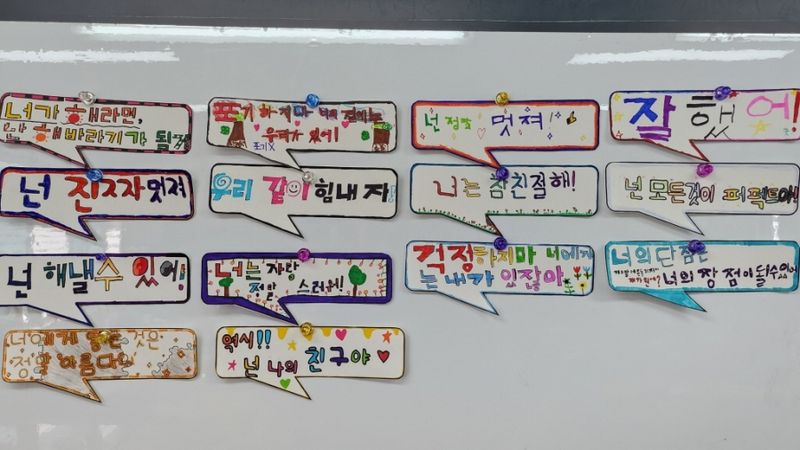 너가 해라면,
난 해바라기가 될게
포기 하지마 너의 곁에는
우리가 있어!
포기X
넌 정말 멋져!
잘했어!
넌 진짜 멋져
우리 같이 힘내자!
너는 참 친절해!
넌 모든것이 퍼펙트야!
넌 해낼수 있어!
너는 자랑
정말 스러워!
걱정하지마 너에게
는 내가 있잖아
너의 단점은
너의 장점이 될수있어
너에게 모든 것은
정말 아름다워
역시!!
넌 나의 친구야